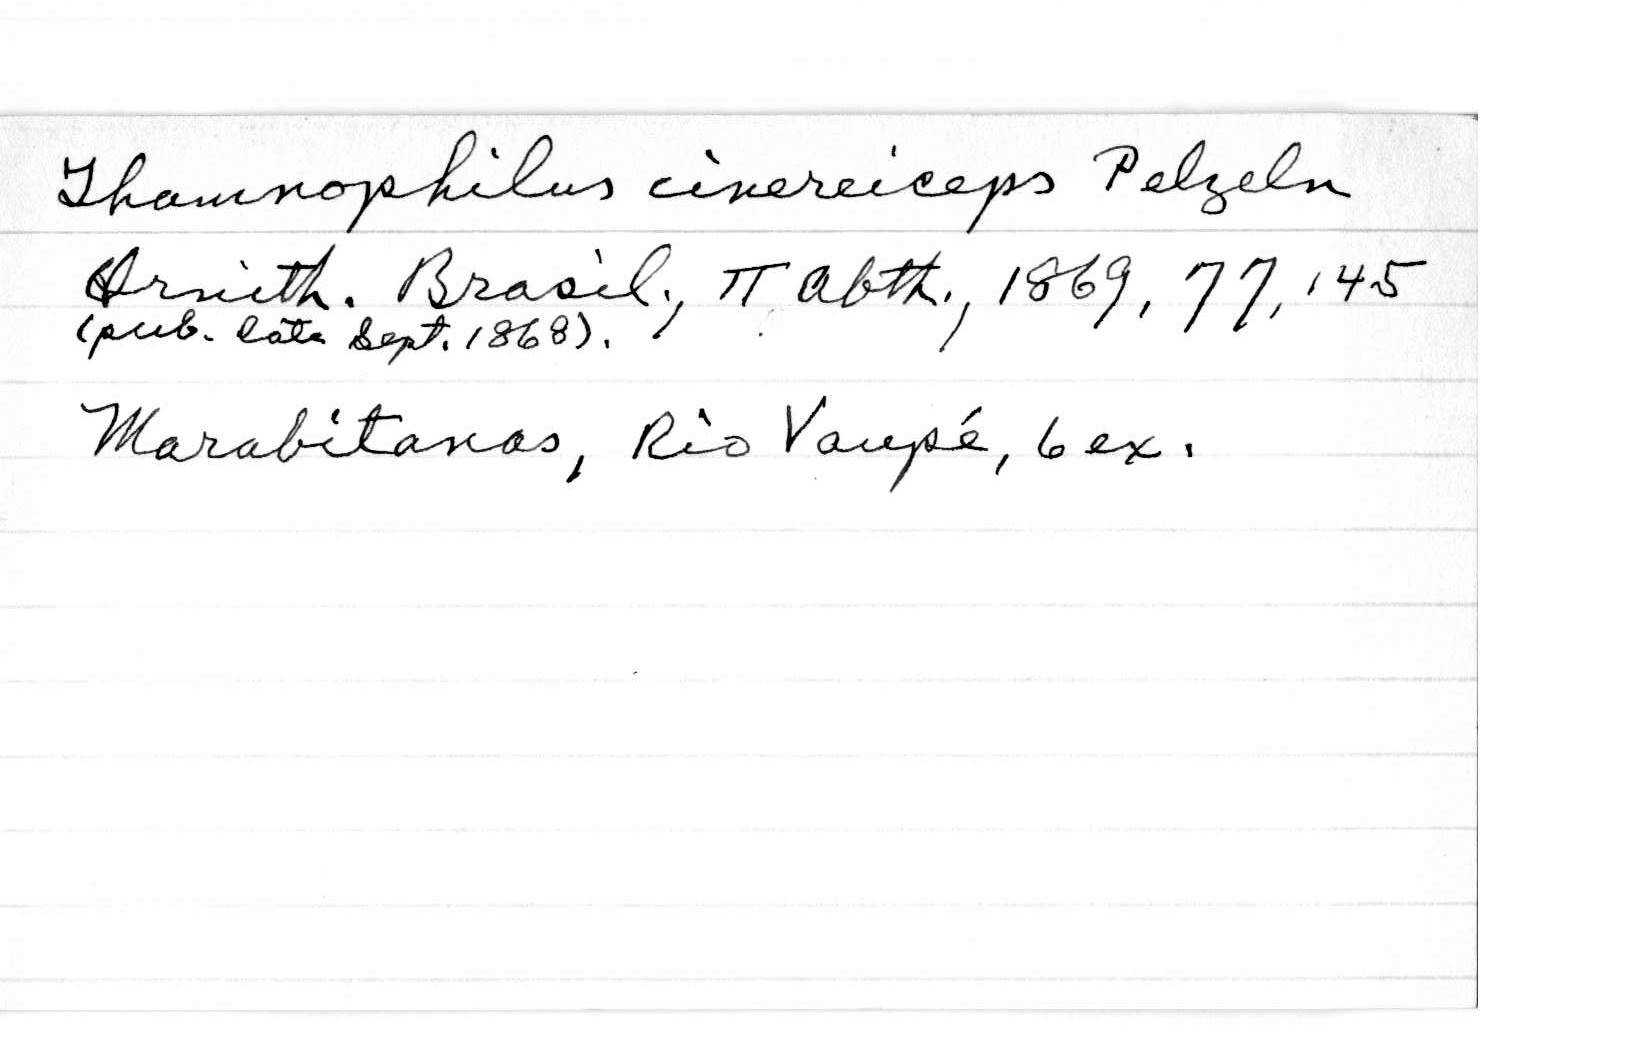 Thamnophilus cinereiceps Pelzeln
Ornith. Brasil., II Abth., 1869, 77, 145
(pub. late Sept. 1868).
Marabitanas, Rio Vaupé, 6 ex.